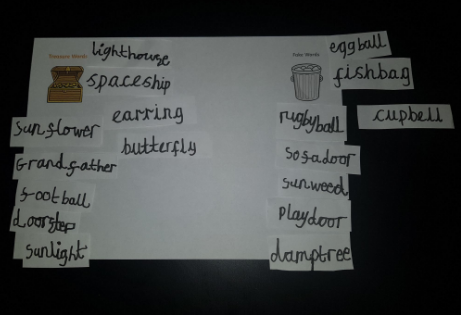 Treasure Words
lighthouse
spaceship
earring
butterfly
sunflower
Grandfather
football
doorstep
sunlight
Fake Words
eggball
fishbag
rugbyball
cupbell
sofadoor
sunweed
playdoor
damptree